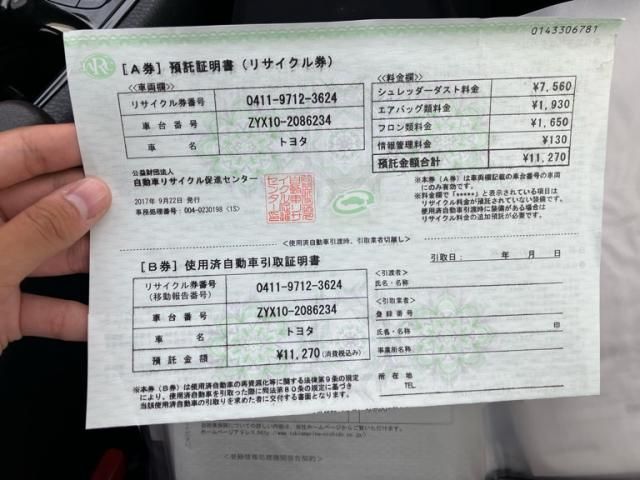 0143306781
［A券］預託証明書（リサイクル券）
≪車両欄≫
リサイクル券番号 0411-9712-3624
車台番号 ZYX10-2086234
車名 トヨタ
≪料金欄≫
シュレッダーダスト料金 ¥7,560
エアバッグ類料金 ¥1,930
フロン類料金 ¥1,650
情報管理料金 ¥130
預託金額合計 ¥11,270
公益財団法人
自動車リサイクル促進センター
2017年 9月22日 発行
事務処理番号: 004-0230198 〈1S〉
※本券（A券）は車両欄記載の車台番号の車両
にのみ有効です。
※料金欄で「*****」と表示されている項目は
リサイクル料金が預託されていない装備です。
使用済自動車引渡時に装備がある場合は
リサイクル料金の追加預託が必要です。
<使用済自動車引渡時、引取業者切離し>
［B券］使用済自動車引取証明書
引取日： 年 月 日
リサイクル券番号
（移動報告番号） 0411-9712-3624
車台番号 ZYX10-2086234
車名 トヨタ
預託金額 ¥11,270（消費税込み）
<引渡者>
氏名・名称
<引取業者>
登録番号
氏名・名称 印
事業所名称
所在地
TEL
※本券（B券）は使用済自動車の再資源化等に関する法律第9条の規定
により、使用済自動車を引取った際に同法第80条の規定に基づき
当該使用済自動車の引取りを求めた者に交付する書面となります。